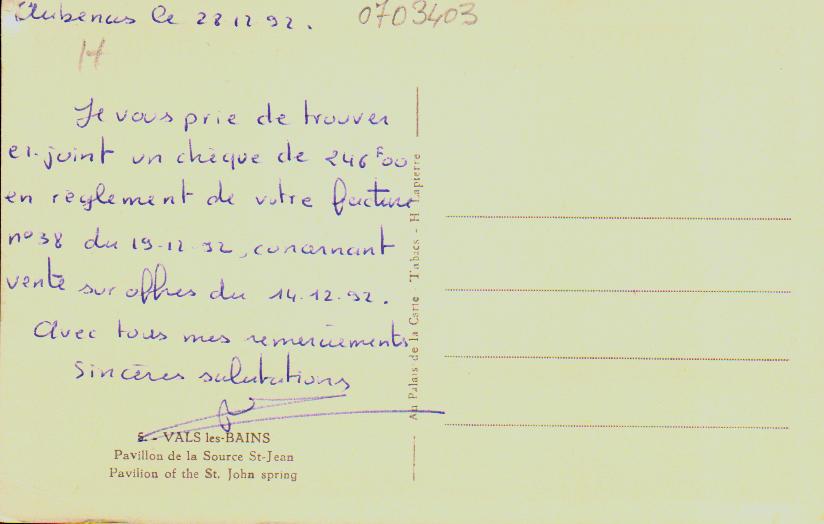 Aubenas le 28 12 92.
0703403
H
Je vous prie de trouver
ci-joint un chèque de 246F00
en règlement de votre facture
n°38 du 19-12-92, concernant
vente sur offres du 14.12.92.
Avec tous mes remerciements
Sincères salutations
8. - VALS les-BAINS
Pavillon de la Source St-Jean
Pavilion of the St. John spring
Au Palais de la Carte - Tabacs - H. Lapierre